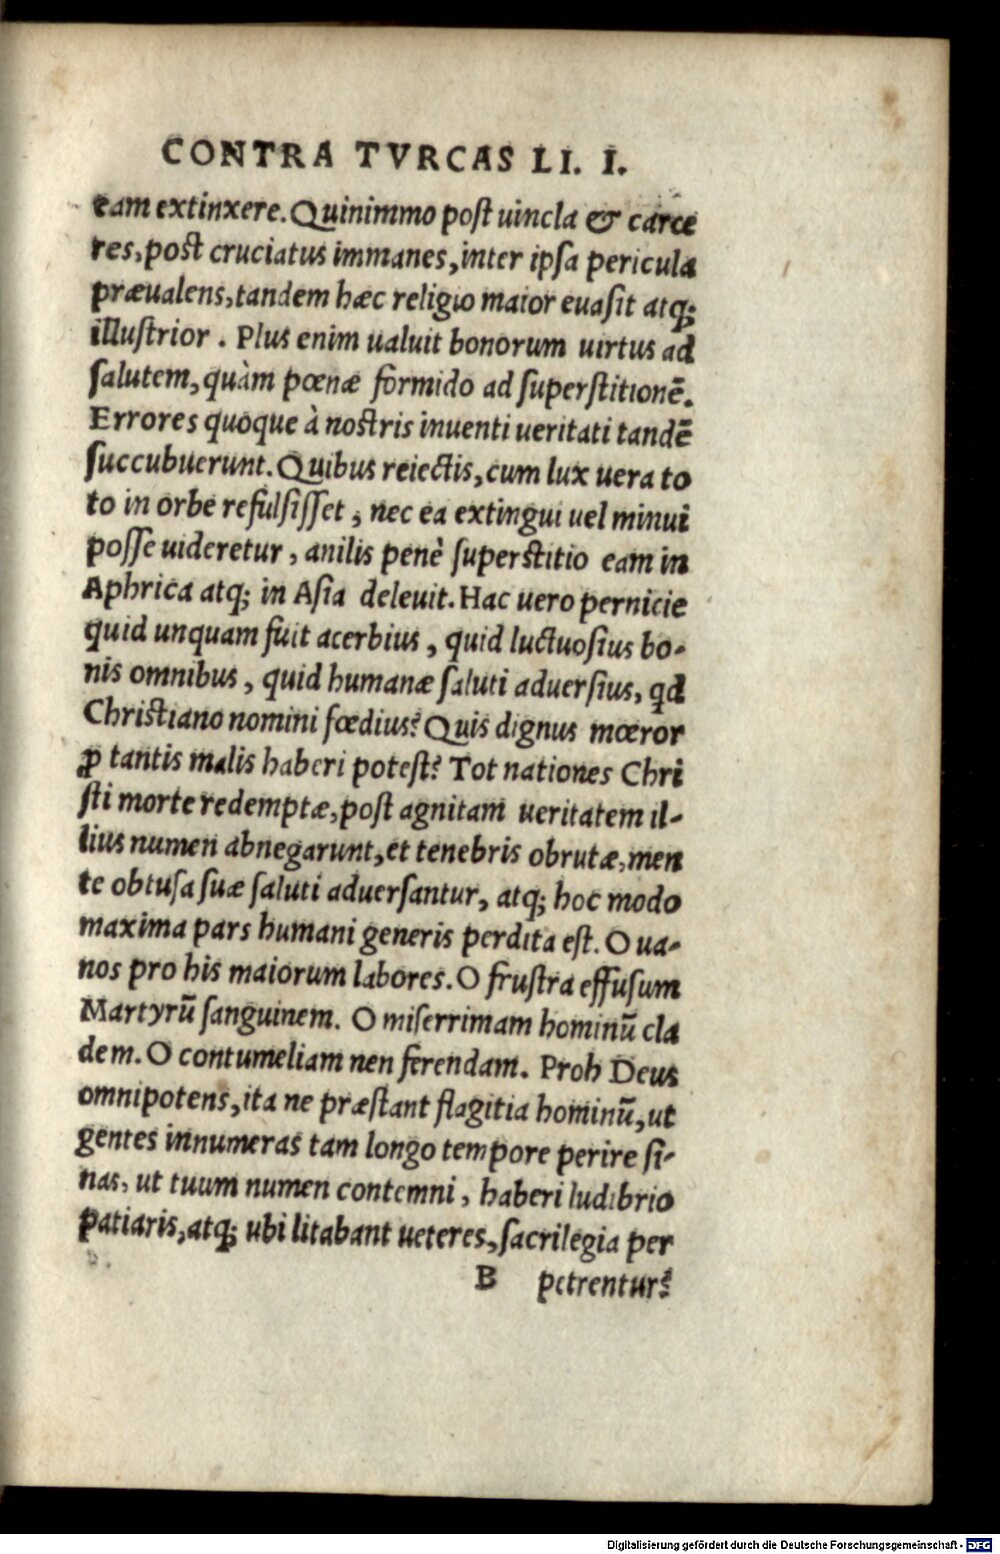 CONTRA TVRCAS LI. I.
eam extinxere. Quinimmo post uincla & carce
res, post cruciatus immanes, inter ipsa pericula
præualens, tandem hæc religio maior euasit atq;
illustrior. Plus enim ualuit bonorum uirtus ad
salutem, quàm pœnæ formido ad superstitionē.
Errores quoque à nostris inuenti ueritati tandē
succubuerunt. Quibus reiectis, cum lux uera to
to in orbe refulsisset, nec ea extingui uel minui
posse uideretur, anilis penè superstitio eam in
Aphrica atq; in Asia deleuit. Hac uero pernicie
quid unquam fuit acerbius, quid luctuosius bo-
nis omnibus, quid humanæ saluti aduersius, qd
Christiano nomini fœdius? Quis dignus mœror
ꝓ tantis malis haberi potest? Tot nationes Chri
sti morte redemptæ, post agnitam ueritatem il-
lius numen abnegarunt, et tenebris obrutæ, men
te obtusa suæ saluti aduersantur, atq; hoc modo
maxima pars humani generis perdita est. O ua-
nos pro his maiorum labores. O frustra effusum
Martyrū sanguinem. O miserrimam hominū cla
dem. O contumeliam nen ferendam. Proh Deus
omnipotens, ita ne præstant flagitia hominū, ut
gentes innumeras tam longo tempore perire si-
nas, ut tuum numen contemni, haberi ludibrio
patiaris, atq; ubi litabant ueteres, sacrilegia per
B petrentur?
Digitalisierung gefördert durch die Deutsche Forschungsgemeinschaft - DFG